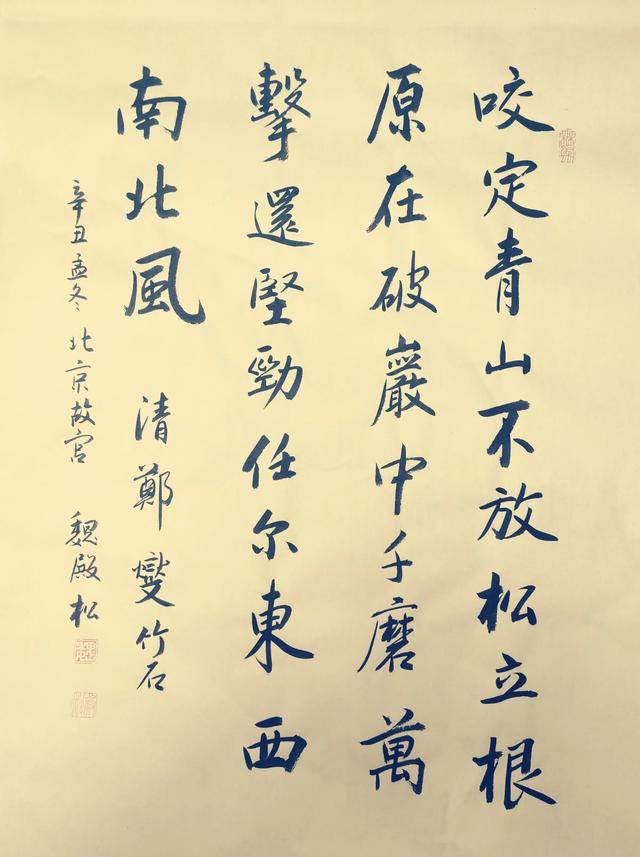 咬定青山不放松立根
原在破巖中千磨萬
擊還堅勁任尔東西
南北風 清鄭燮竹石
辛丑孟冬北京故宫 魏殿松